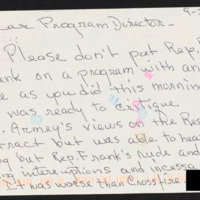 ear Program Director -
9-2
Please don't pat Rep.
ank on a program with an
e as you did this morning
was ready to critique
. Armey's views on the Re
ract but was able to hea
g but Rep. Frank's rude and
ng interruptions and incessa
It was worse than Crossfire!